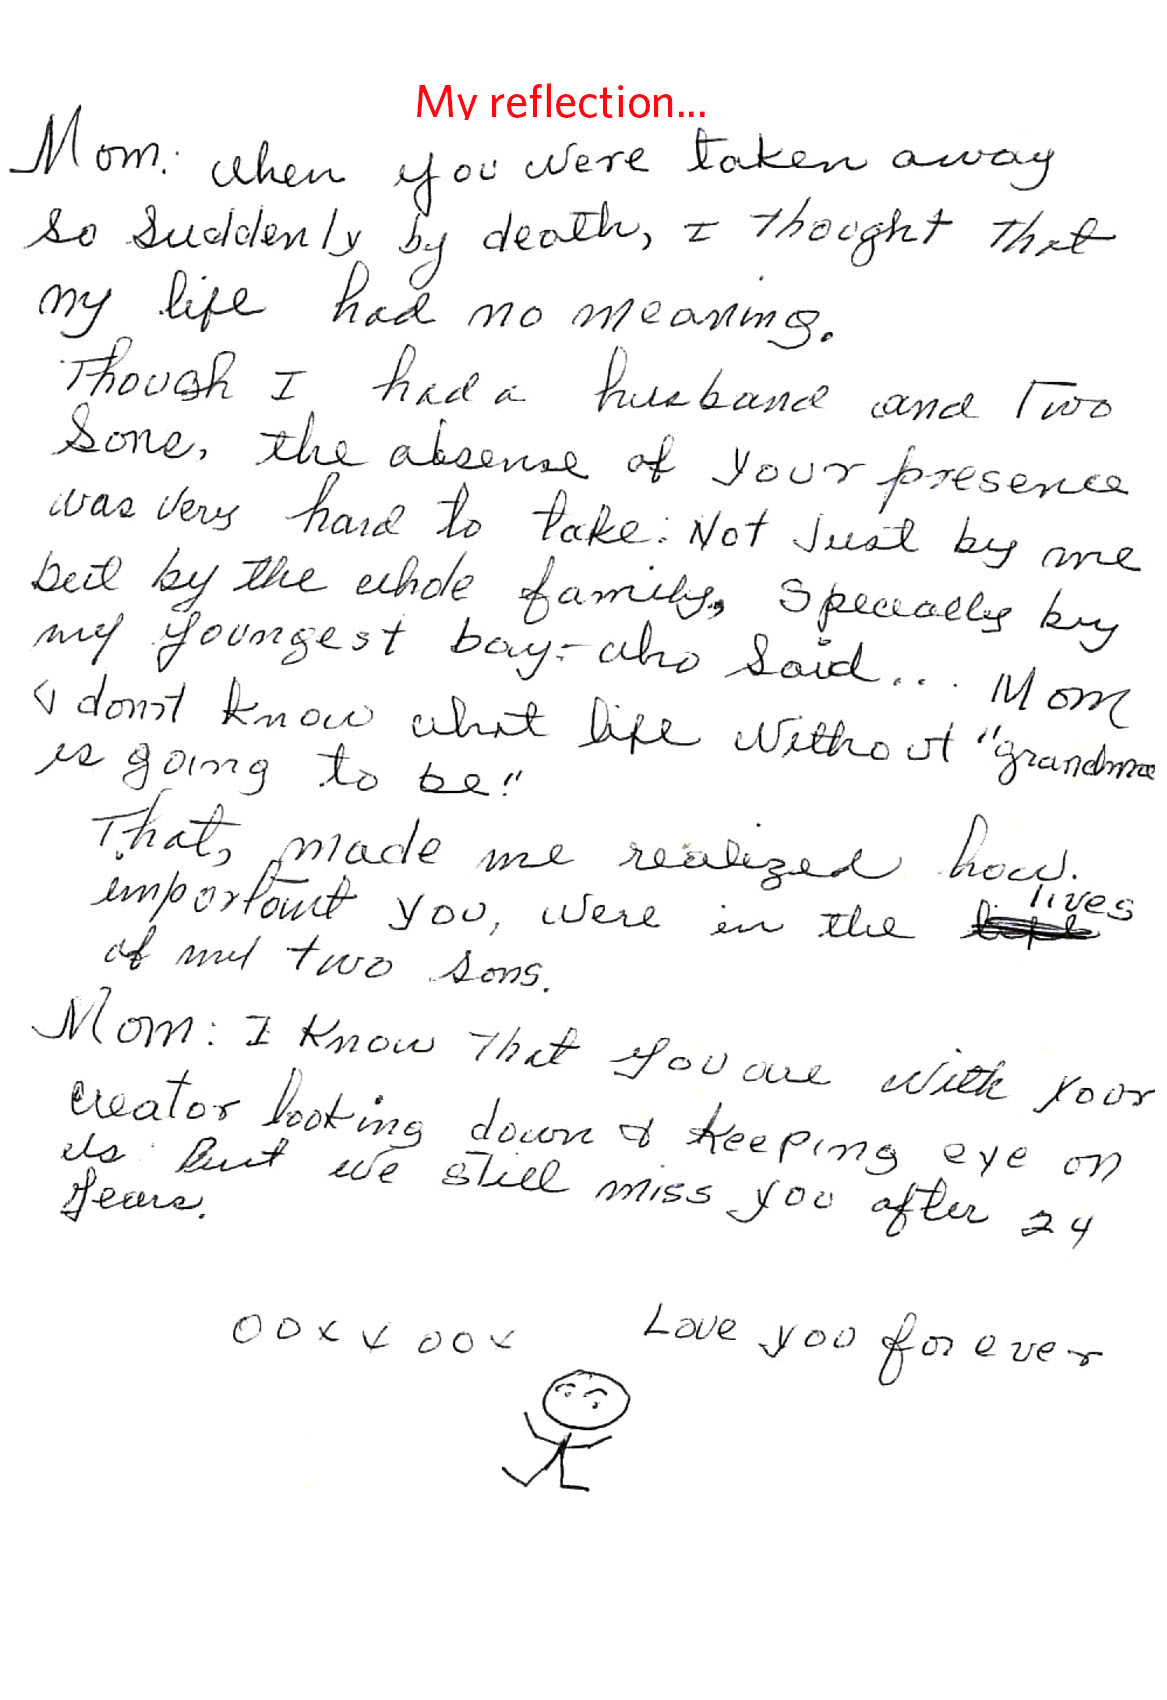 My reflection...
Mom: when you were taken away
so suddenly by death, I thought that
my life had no meaning.
Though I had a husband and Two
Sons, the absense of your presence
was very hard to take: Not Just by me
but by the whole family, specially by
my youngest boy - who said... Mom
I don't know what life without "grandma
is going to be"
That, made me realized how.
important you, were in the lives
of my two sons.
Mom: I know that you are with your
creator looking down & keeping eye on
us but we still miss you after 24
years.
OOxxOOx Love you forever